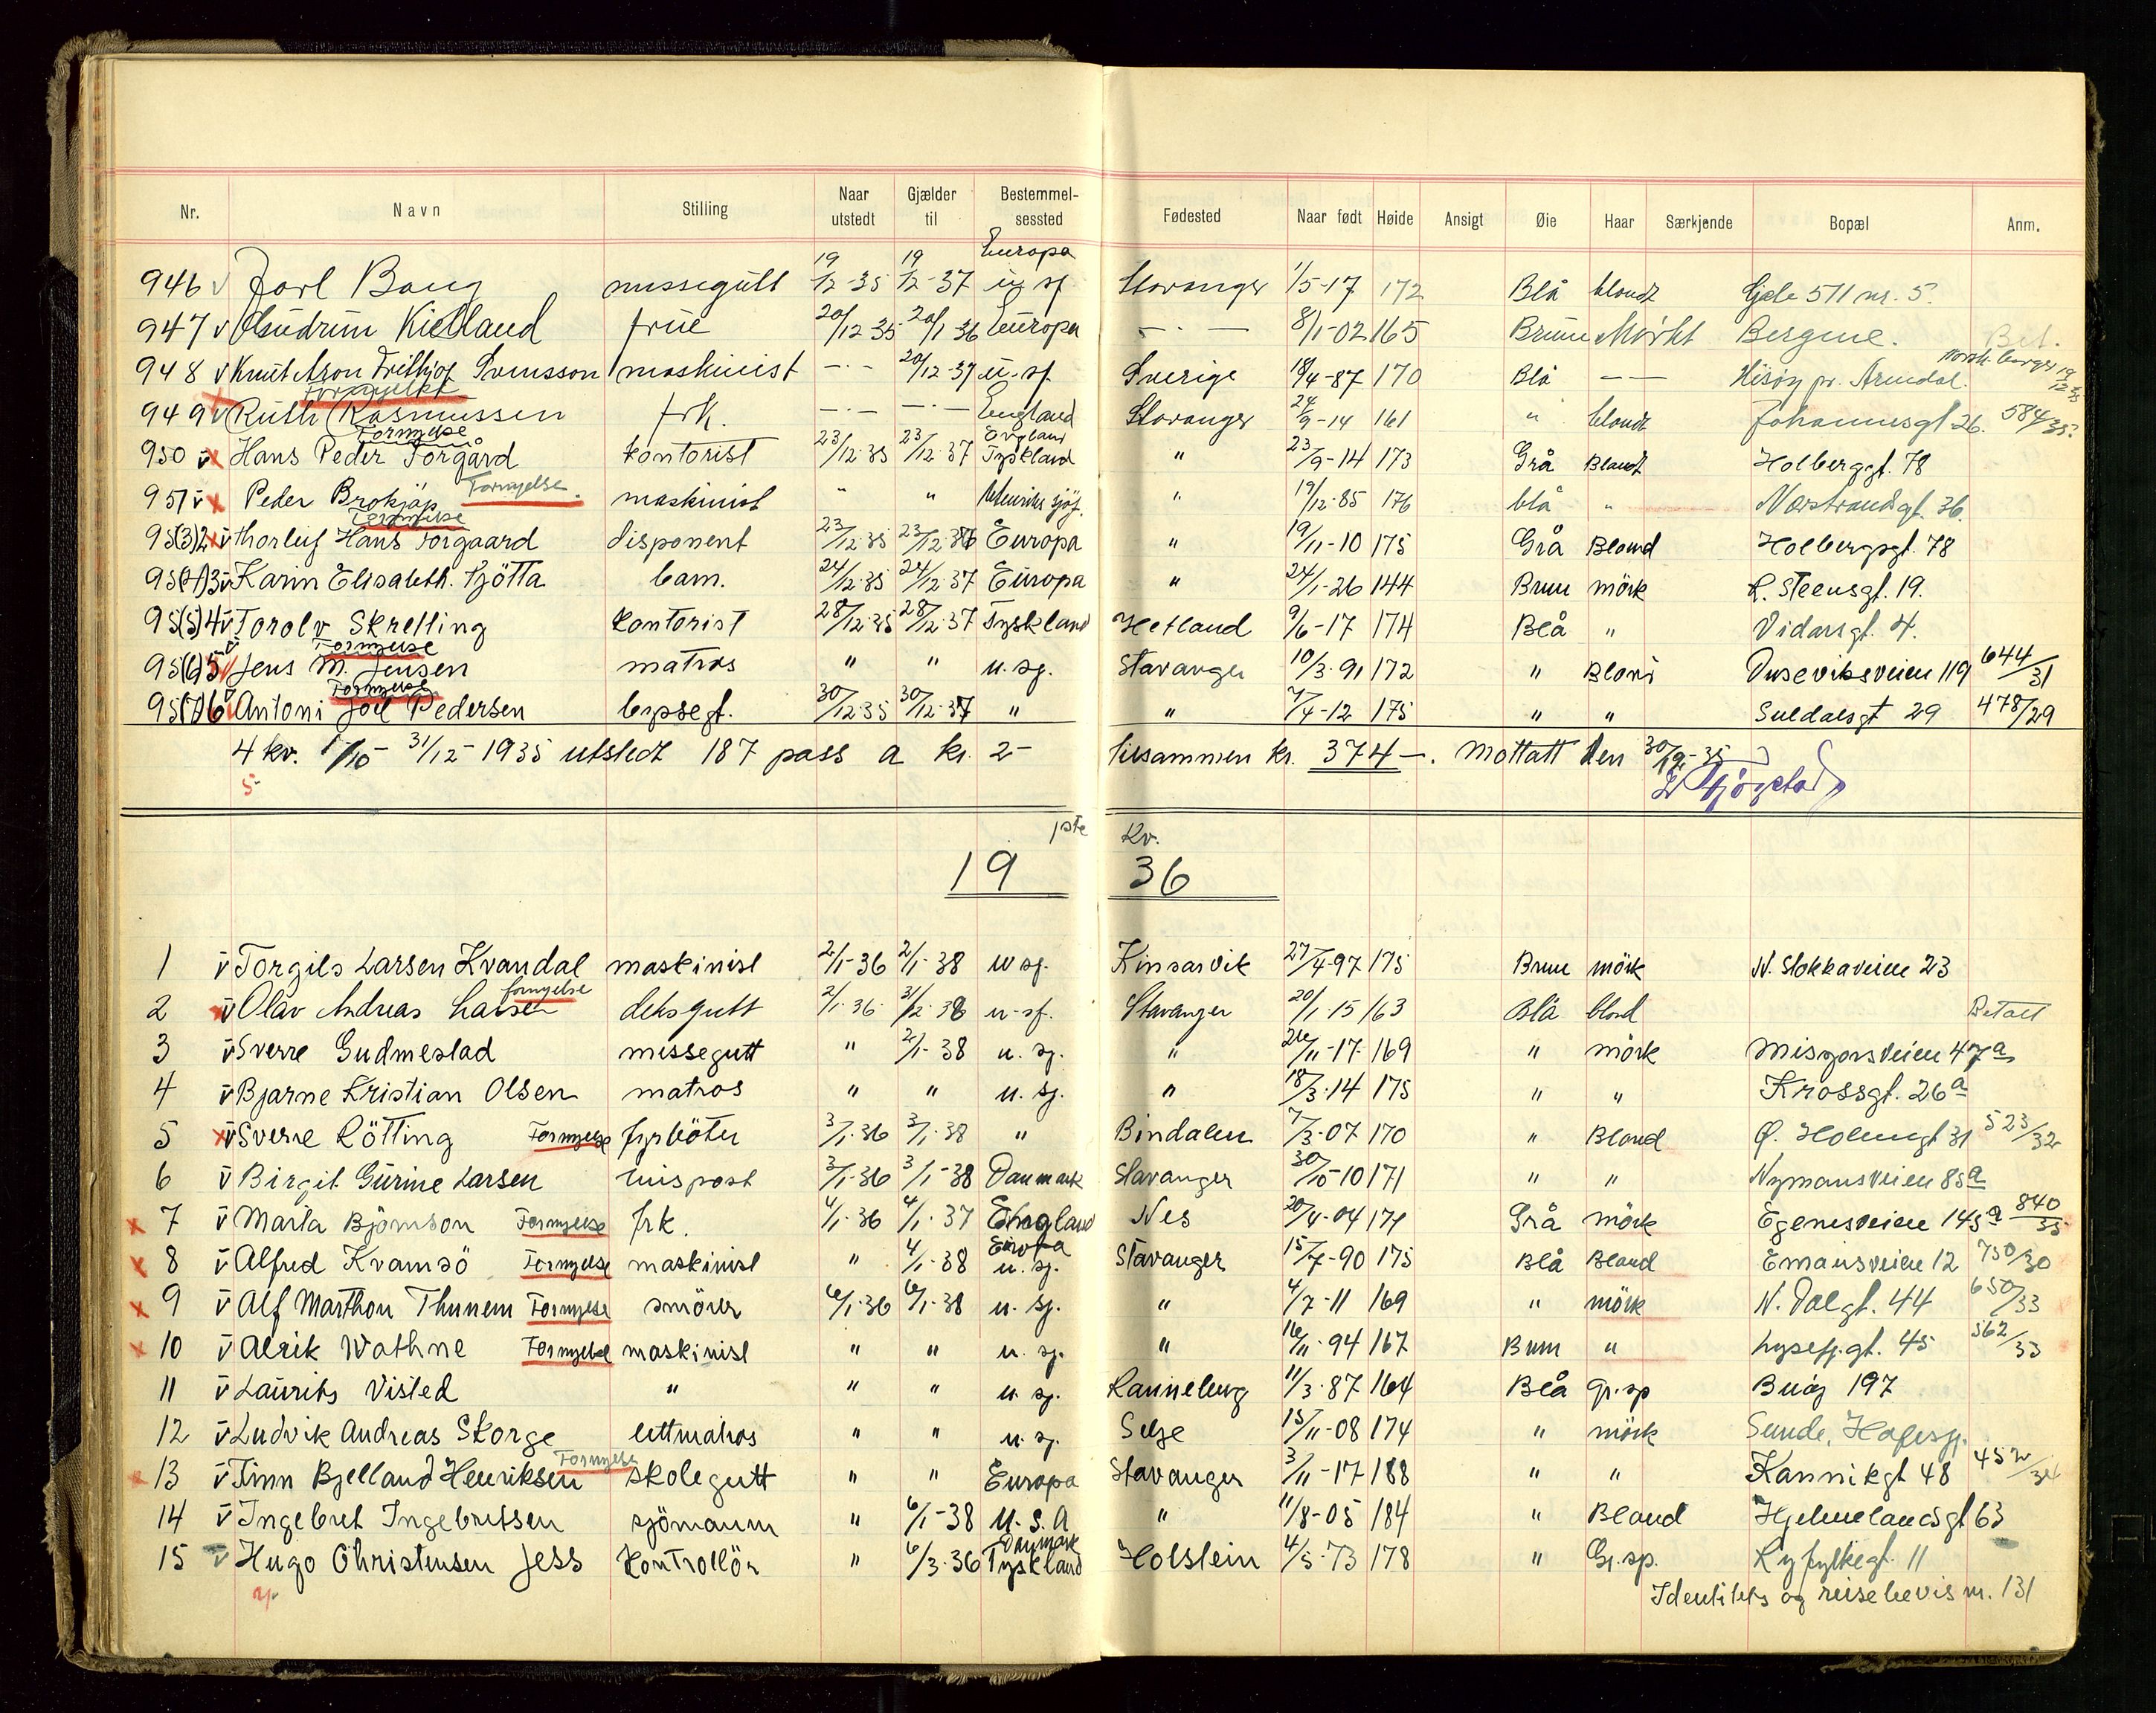 Nr. Navn Stilling Naar utstedt Gjælder til Bestemmelsessted Fødested Naar født Høide Ansigt Øie Haar Særkjende Bopæl Anm.
946 v Jarl Baug messegutt 19/12-35 19/12-37 Europa u. sj. Stavanger 1/5-17 172 Blå blondt Gjele 511 nr. 5.
947 v Gudrun Kielland frue 20/12 35 20/1 36 Europa — · — 8/1-02 165 Brune Mörkt Bergene. Bet.
948 v Knut Aron Frithjof Svensson maskinist — · — 20/12-37 u. sj. Sverige 18/4-87 170 Blå — — Hisöy pr. Arendal. norsk borger 19/12 35
949 v Ruth Rasmussen Fornyelse frk. — · — — · — England Stavanger 24/9-14 161 " blondt Johannesgt 26. 584/35.
950 v x Hans Peder Torgård Fornyelse kontorist 23/12-35 23/12-37 England Tyskland " 23/9-14 173 Grå Blondt Holberggt. 78
951 v x Peder Brokjáp Fornyelse. maskinist " " " 19/12-85 176 blå " Norstrandgt. 36.
95(3)2 x v Thorleif Hans Torgaard Fornyelse disponent 23/12-35 23/12-36 Europa " 19/11-10 175 Grå Blond Holbergsgt. 78
95(4)3 v Karin Elisabeth. Tjötta barn. 24/12-35 24/12-37 Europa " 24/1-26 144 Brun mörk R. Steensgt. 19.
95(5)4 v Torolv Skretting kontorist 28/12-35 28/12-37 Tyskland Hetland 9/6-17 174 Blå " Vidarsgt. 4.
95(6)5 v Jens M. Jensen Fornyelse matros " " u. sj. Stavanger 10/3-91 172 " Blond Duseviksveien 119 644/31
95(7)6 v Antoni Joel Pedersen Fornyelse byssegt. 30/12-35 30/12-37 " " 7/4-12 175 " " Suldalsgt 29 478/29
4 kv. 1/10 - 31/12 - 1935 utstedt 187 pass a kr. 2- tilsammen kr. 374 —. Mottatt den 30/12-35
1ste Kv.
19 36
1 v Torgils Larsen Kvandal maskinist 2/1-36 2/1-38 u. sj. Kinsarvik 27/4-97 175 Brun mörk N. Stokkaveien 23
2 x v Olav Andreas Larsen fornyelse deksgutt 2/1-36 31/12-38 u. sj. Stavanger 20/1-15 163 Blå blond Betalt
3 v Sverre Gudmestad messegutt " 2/1-38 u. sj. " 26/11-17 169 " mörk Misjonsveien 47a
4 v Bjarne Kristian Olsen matros " " u. sj. " 18/3-14 175 " " Krossgt. 26a
5 x v Sverre Rötting Fornyelse fyrböter 3/1-36 3/1-38 " Bindalen 7/3-07 170 " Blond Ø. Holmegt 31 523/32
6 v Birgit Gurine Larsen huispost 3/1-36 3/1-38 Danmark Stavanger 30/10-10 171 " " Nymansveien 85a
x 7 v Marta Björnson Fornyelse frk. 4/1-36 4/1-37 England Nes 20/4-04 171 Grå mörk Egenesveien 145a 840/35
x 8 v Alfred Kvamsö Fornyelse maskinist " 4/1-38 Europa u. sj. Stavanger 15/7-90 175 Blå Blond Emausveien 12 750/30
x 9 v Alf Marthon Thunem Fornyelse smörer 6/1-36 6/1-38 u. sj. " 4/7-11 169 " mörk N. Dalgt. 44 650/33
x 10 v Alrik Wathne Fornyelse maskinist " " u. sj. " 16/11-94 167 Brun " Lysefj.gt. 45 562/33
11 v Laurits Visted " " " u. sj. Ranneberg 11/3-87 164 Blå Gr.sp Buöy 197
12 v Ludvik Andreas Skorge lettmatros " " u. sj. Selje 15/11-08 174 " mörk Sunde, Hafrsfj.
x 13 v Finn Bjelland Henriksen Fornyelse skolegutt " " Europa Stavanger 3/11-17 188 " " Kannikgt 48 452/34
14 v Ingebret Ingebretsen sjömann " 6/1-38 U.S.A " 11/8-05 184 " Blond Hjelmelandsgt 63
15 v Hugo Christensen Jess Kontrollör " 6/3-36 Danmark Tyskland Holstein 4/5-73 178 " Gr.sp. Ryfylkegt. 11
Identitets og reisebevis nr. 131